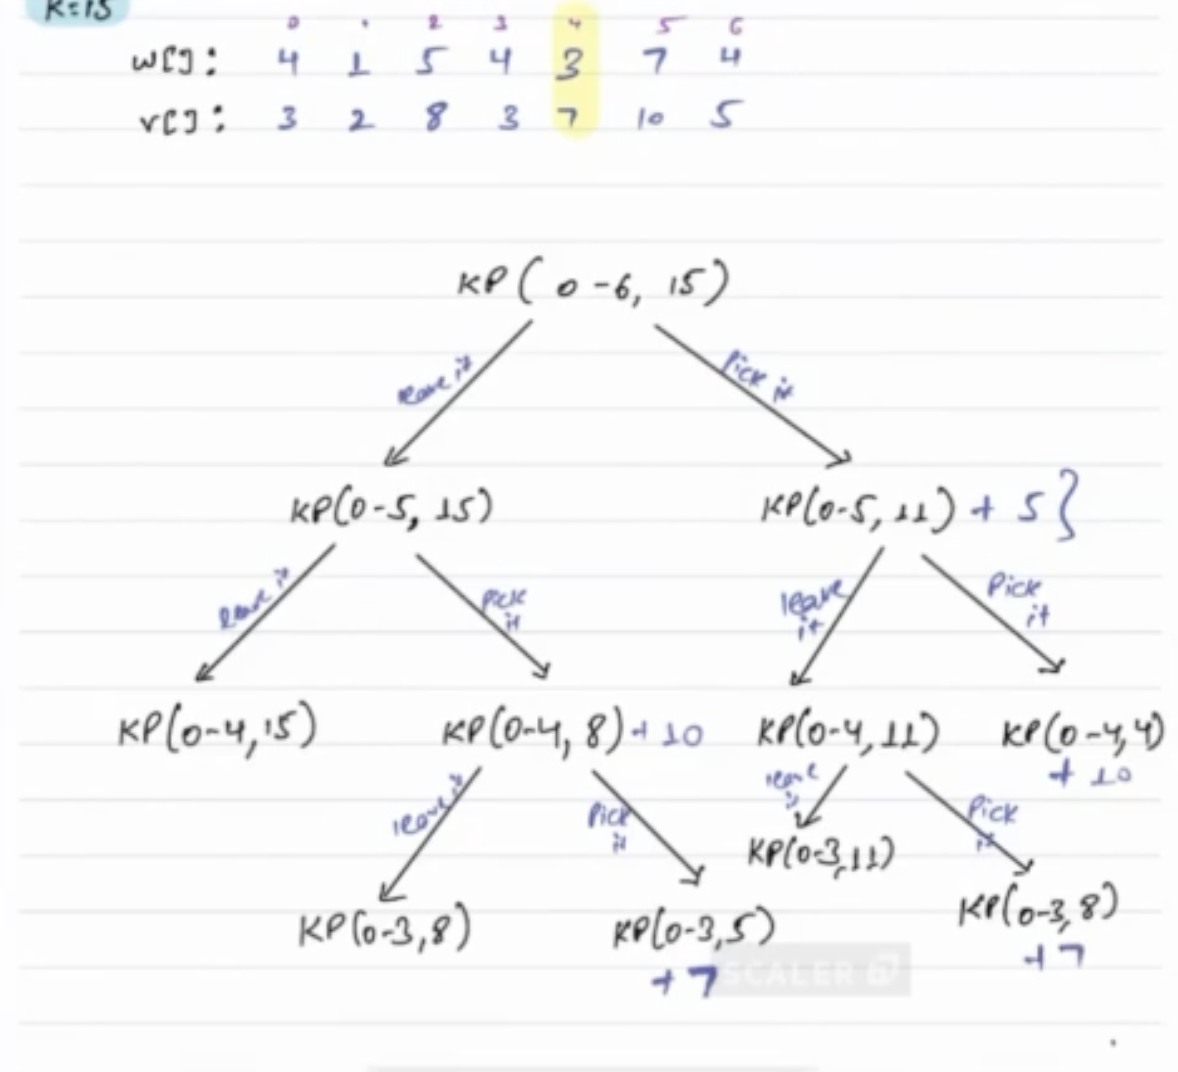 K=15
0 1 2 3 4 5 6
w[]: 4 1 5 4 3 7 4
v[]: 3 2 8 3 7 10 5
KP( 0-6, 15)
leave it
Pick it
KP(0-5, 15)
KP(0-5, 11) + 5 }
leave it
Pick it
leave it
Pick it
KP(0-4, 15)
KP(0-4, 8) + 10
KP(0-4, 11)
KP(0-4, 4) + 10
leave it
Pick it
leave it
Pick it
KP(0-3, 11)
KP(0-3, 8)
KP(0-3, 5) + 7
KP(0-3, 8) + 7
SCALER